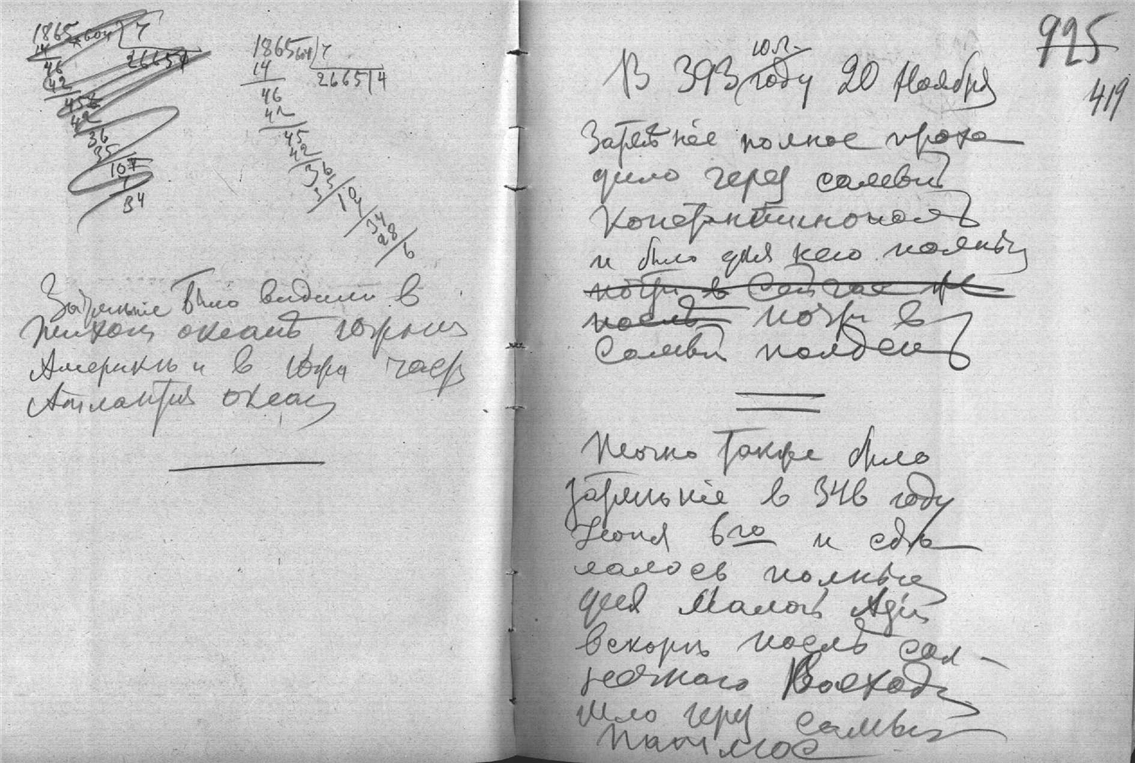 1865604 | 7
14
266514
46
42
45
42
36
35
107
7
34
1865604 | 7
14
266514
46
42
45
42
36
35
10
7
34
28
6
Затменіе было видимо в
Тихом океанѣ Южныя
Америки и в Южн части
Атлантич океан
925
419
юл.
В 393 году 20 Ноября
Затменіе полное прохо
дило через самый
Константинополь
и было для него полным
почти в
послѣ почти в
самый полдень
Точно также было
затменіе в 346 году
Іюня 6го и сдѣ
лалось полным
для Малой Азіи
вскорѣ послѣ сол-
нечного Восхода
шло через самый
Патмос